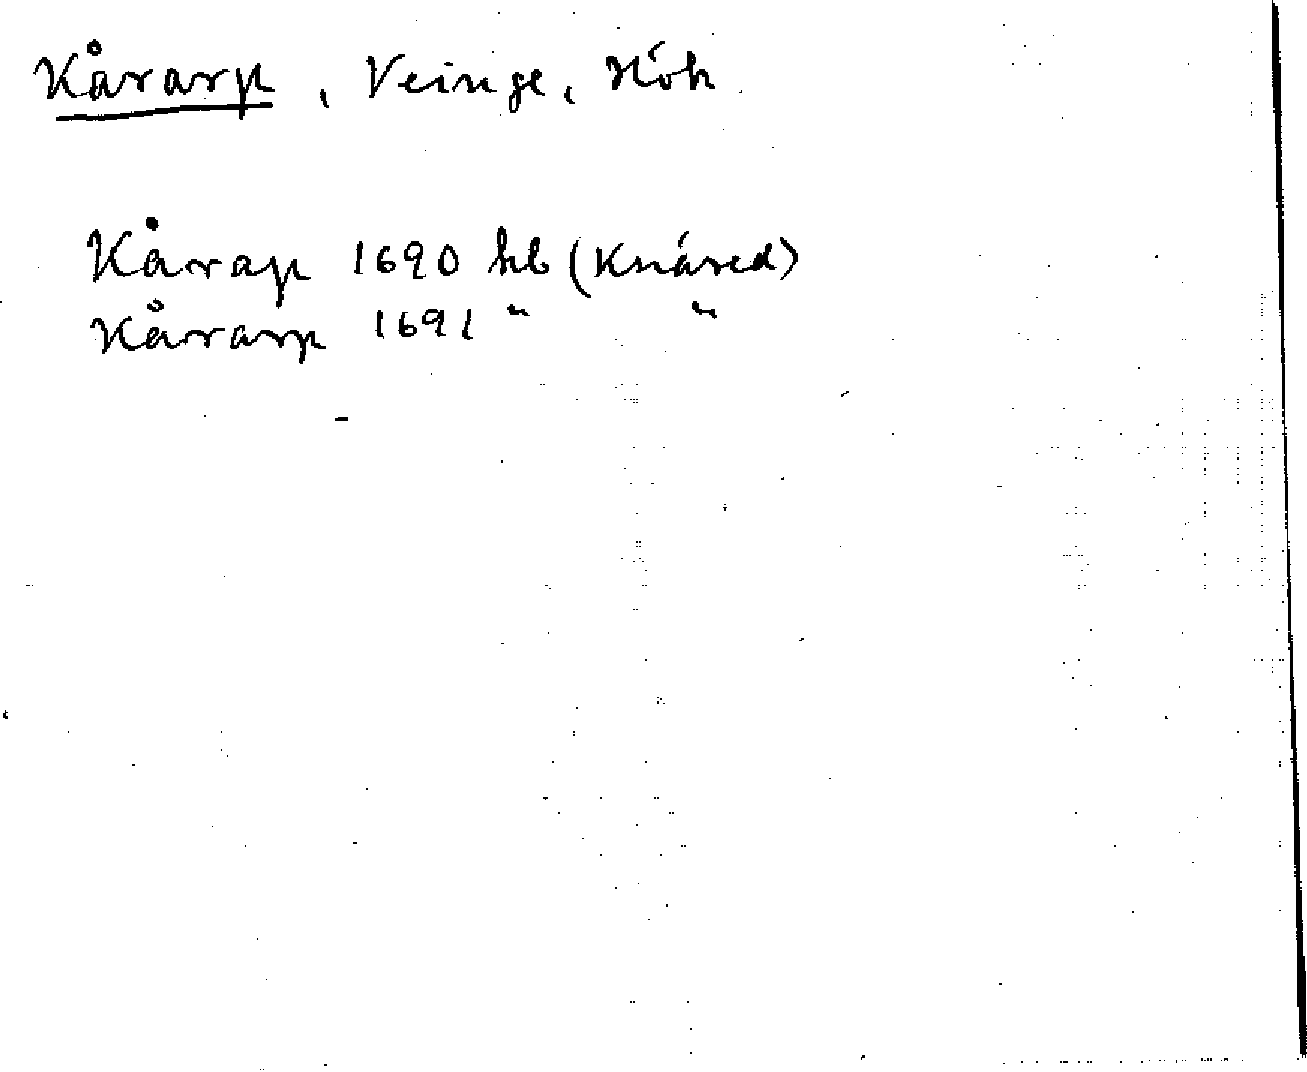 Kårarp, Veinge, Höh
Kårap 1690 kb (Knäred)
Kårarp 1691 " "